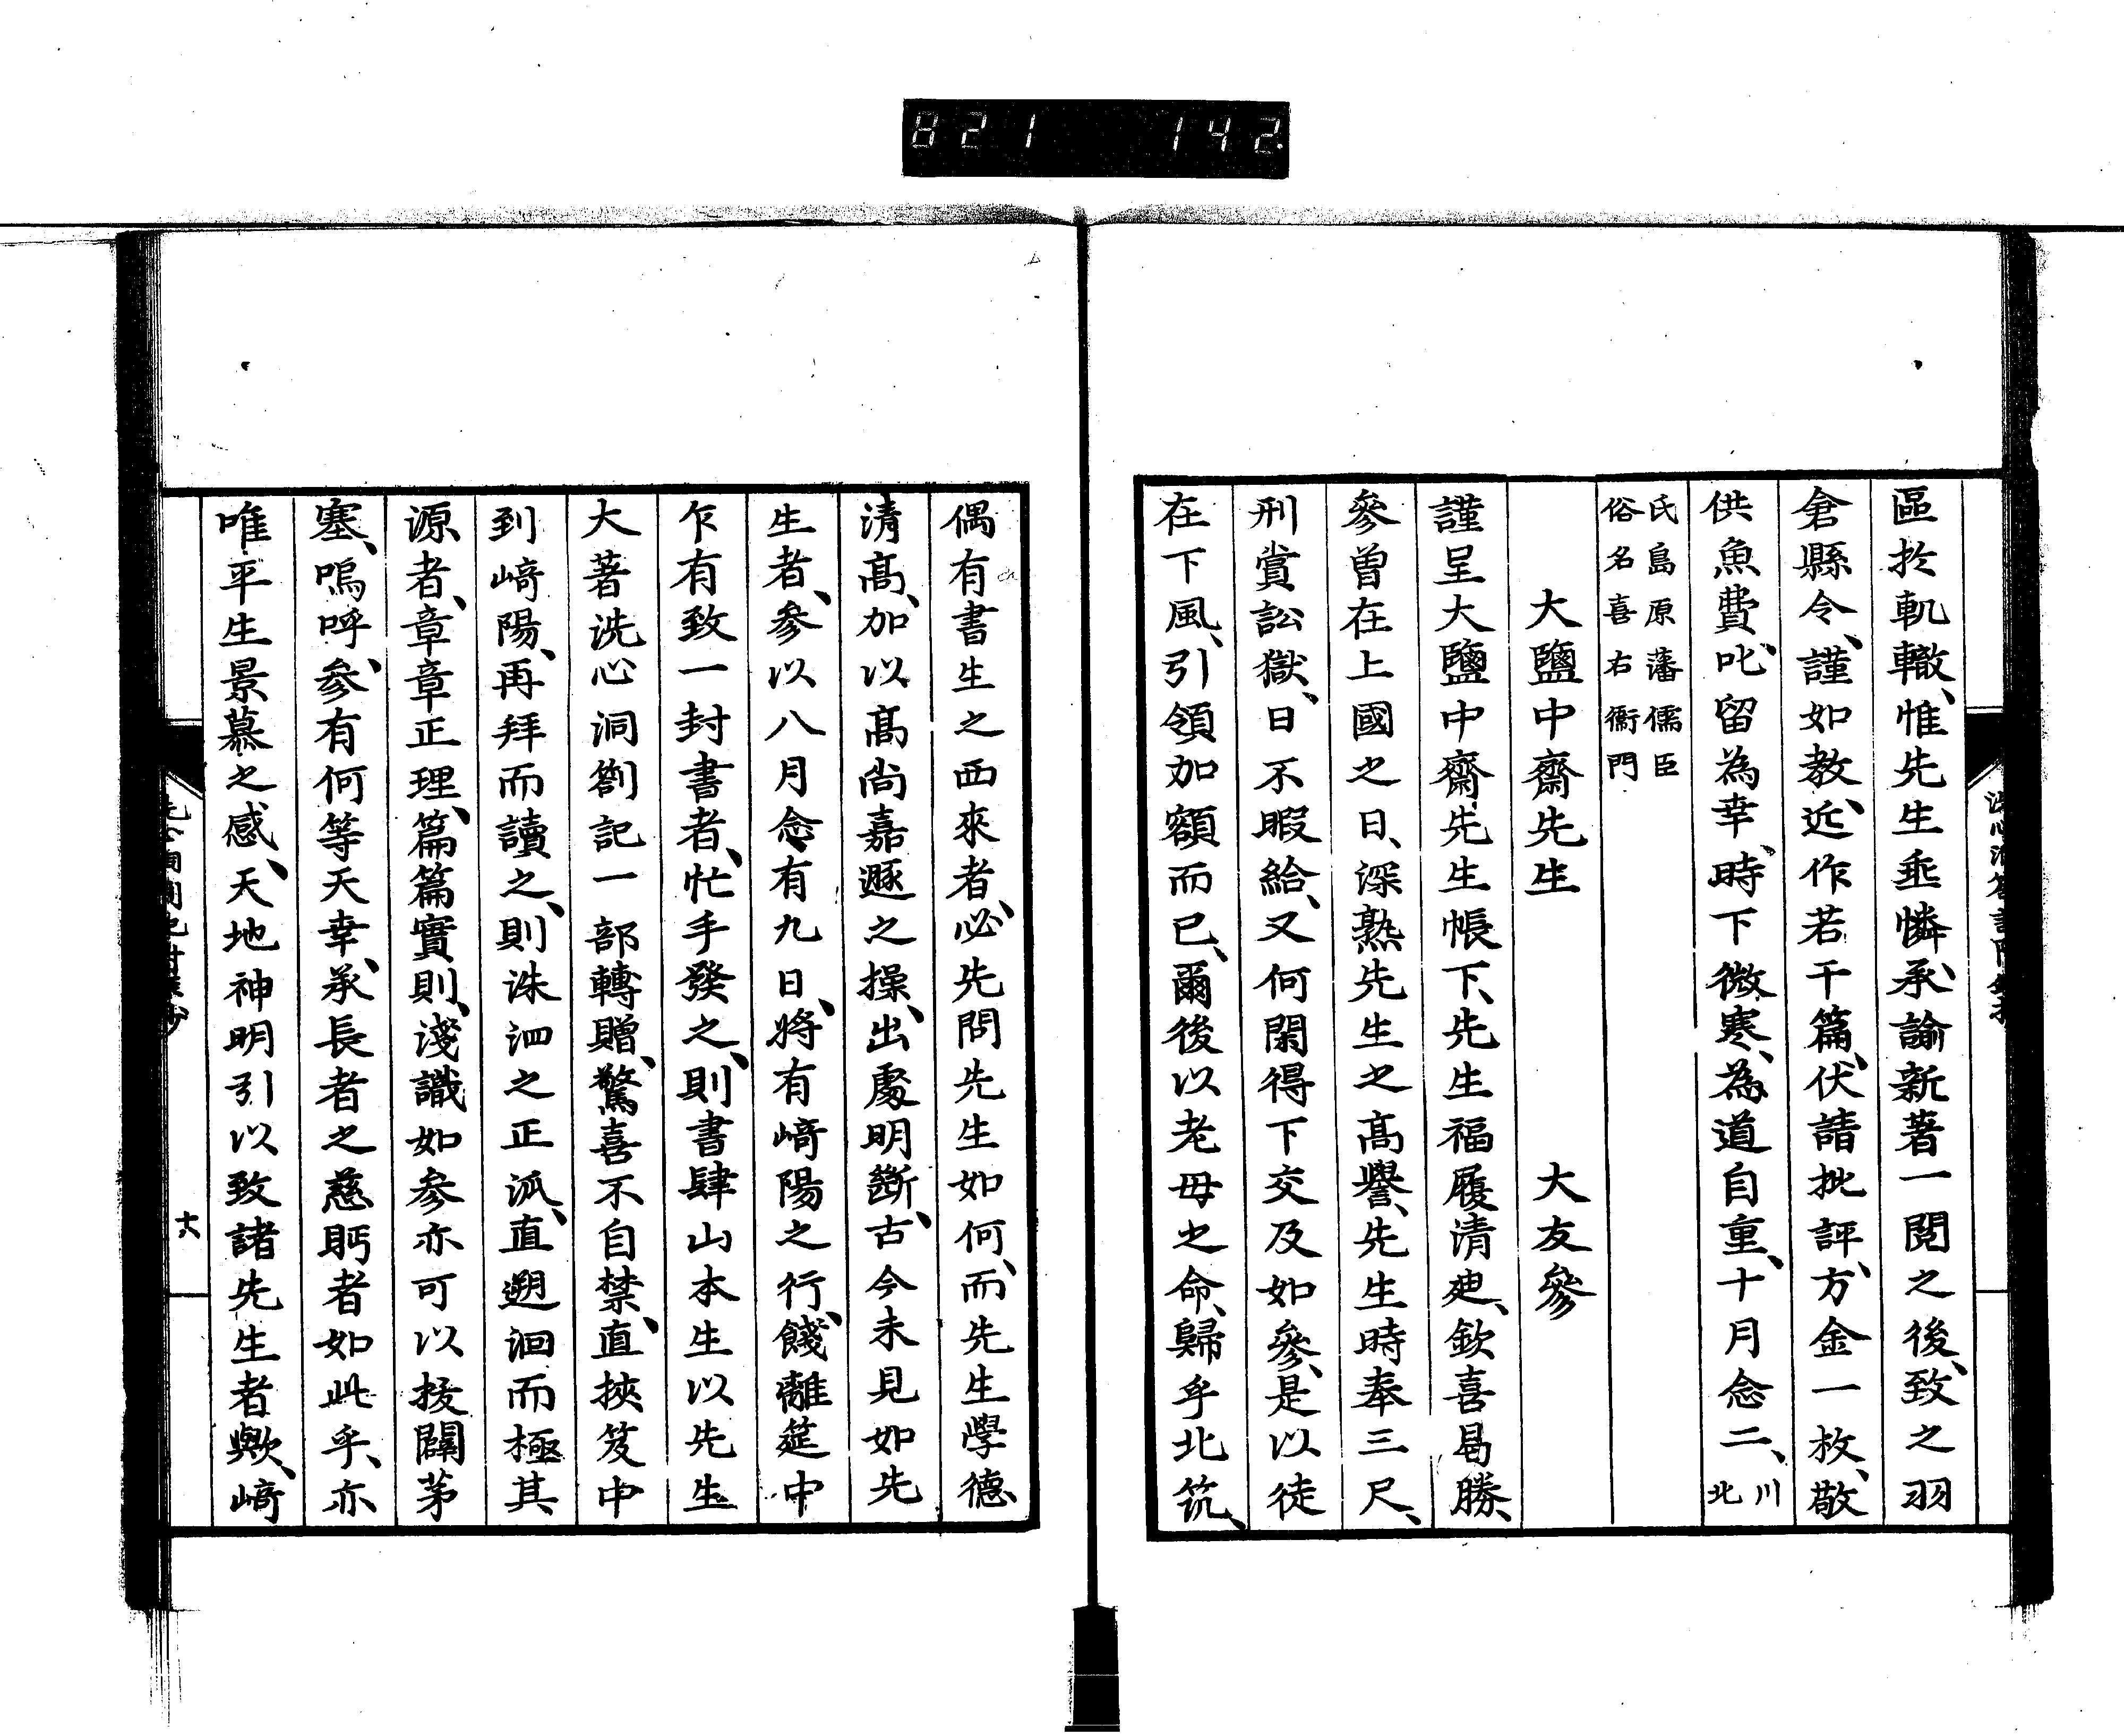 821 142
區於軏轍、惟先生垂憐、承諭新著一閱之後、致之羽
倉縣令、謹如教、近作若干篇、伏請批評、方金一枚、敬
供魚費、叱留為幸、時下微寒、為道自重、十月念二、北川
氏島原藩儒臣
俗名喜右衞門
大鹽中齋先生 大友參
謹呈大鹽中齋先生帳下、先生福履清迪、欽喜曷勝、
參曽在上國之日、深熟先生之高譽、先生時奉三尺、
刑賞訟獄、日不暇給、又何閑得下交及如參、是以徒
在下風、引領加額而已、爾後以老母之命、歸乎北筑、
偶有書生之西來者、必先問先生如何、而先生學德
清高、加以高尚嘉遯之操、出處明斷、古今未見如先
生者、參以八月念有九日、將有﨑陽之行、餞離筵中
乍有致一封書者、忙手發之、則書肆山本生以先生
大著洗心洞劄記一部轉贈、驚喜不自禁、直挾笈中
到﨑陽、再拜而讀之、則洙泗之正派、直遡洄而極其
源者、章章正理、篇篇實則、淺識如參亦可以拔闢茅
塞、嗚呼、參有何等天幸、承長者之慈眄者如此乎、亦
唯平生景慕之感、天地神明引以致諸先生者歟、﨑
十六